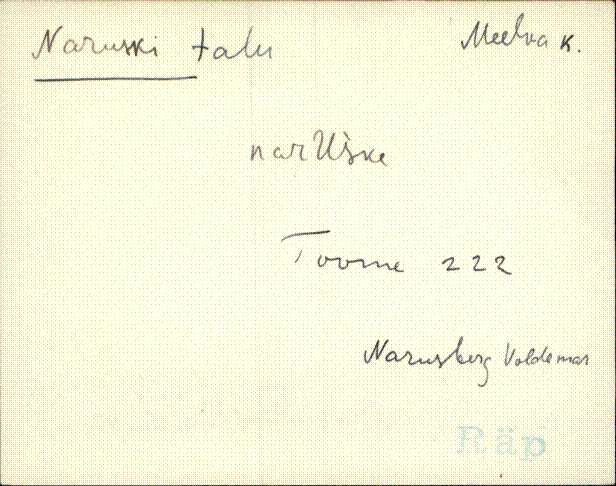 Naruski talu Meelva k.
narUs̀ke
Toome 222
Narusberg Voldemar
Räp